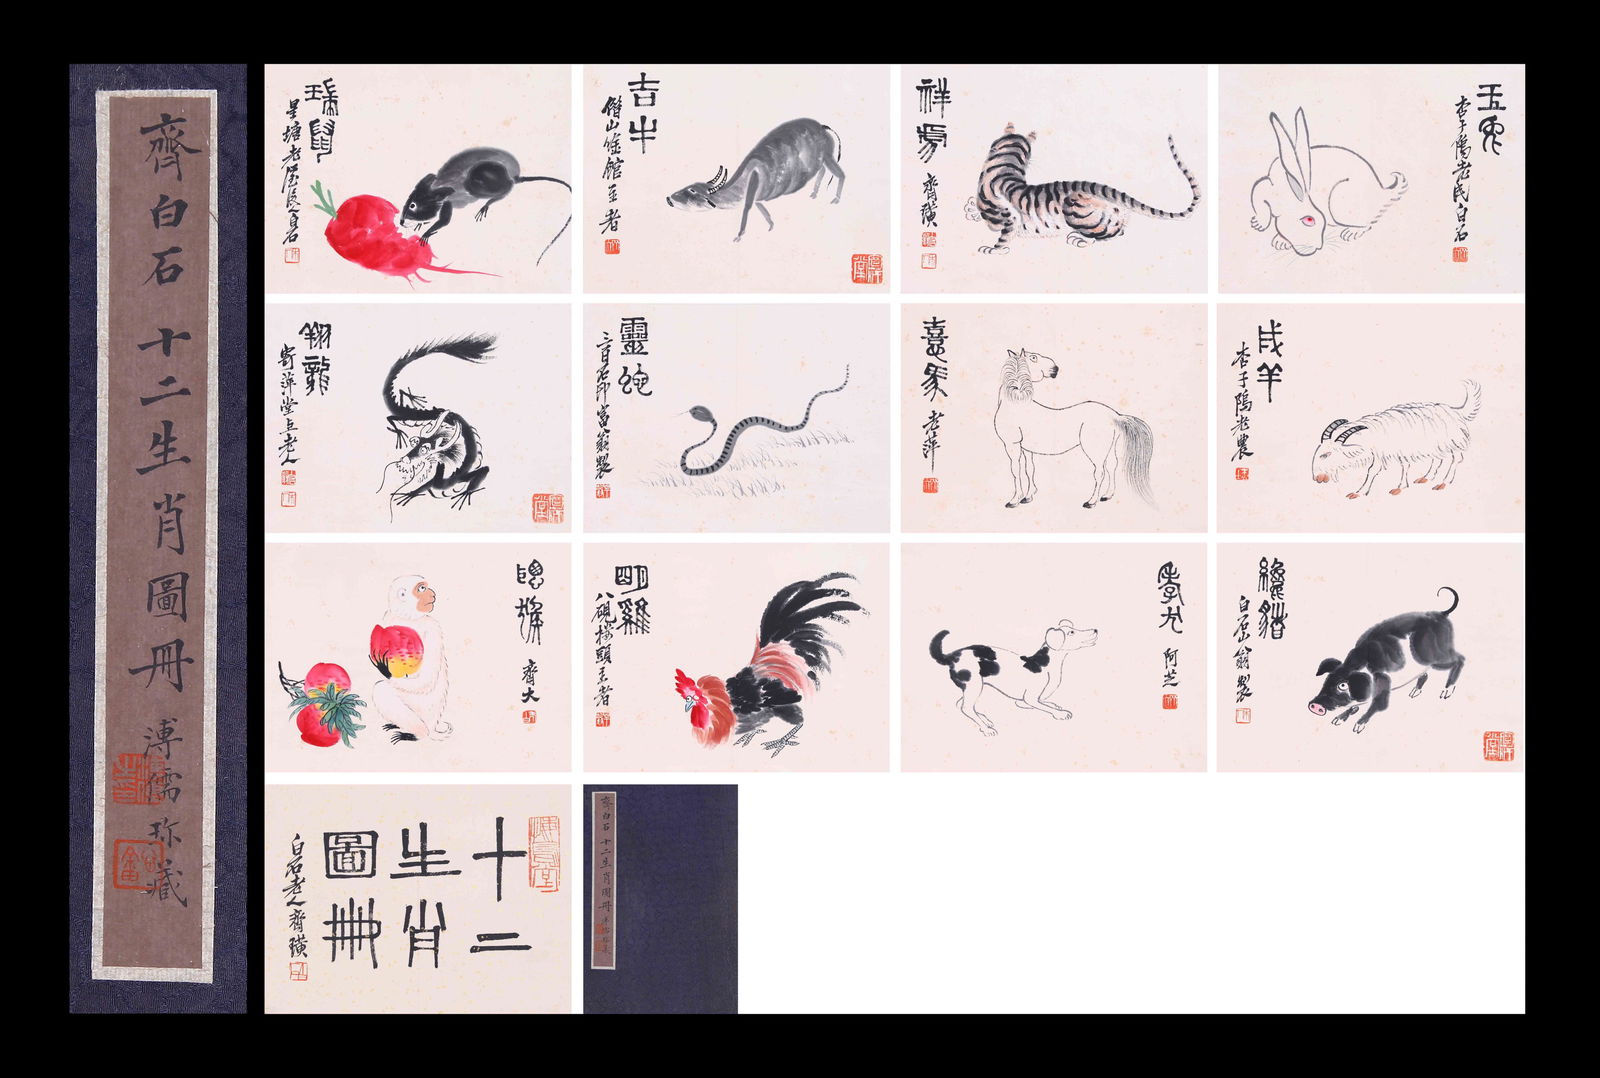 齊白石 十二生肖圖冊 溥儒珍藏
瑞鼠
星塘老屋後人白石
吉牛
借山吟館主者
祥虎
齊璜
玉兔
杏子隖老民白石
翔龍
寄萍堂上老人
靈蛇
三百石印富翁製
喜馬
老萍
羊
杏子隖老農
齊大
明雞
八硯樓頭主者
阿芝
豬
白石山翁製
十二
生肖
圖冊
白石老人齊璜
齊白石 十二生肖圖冊